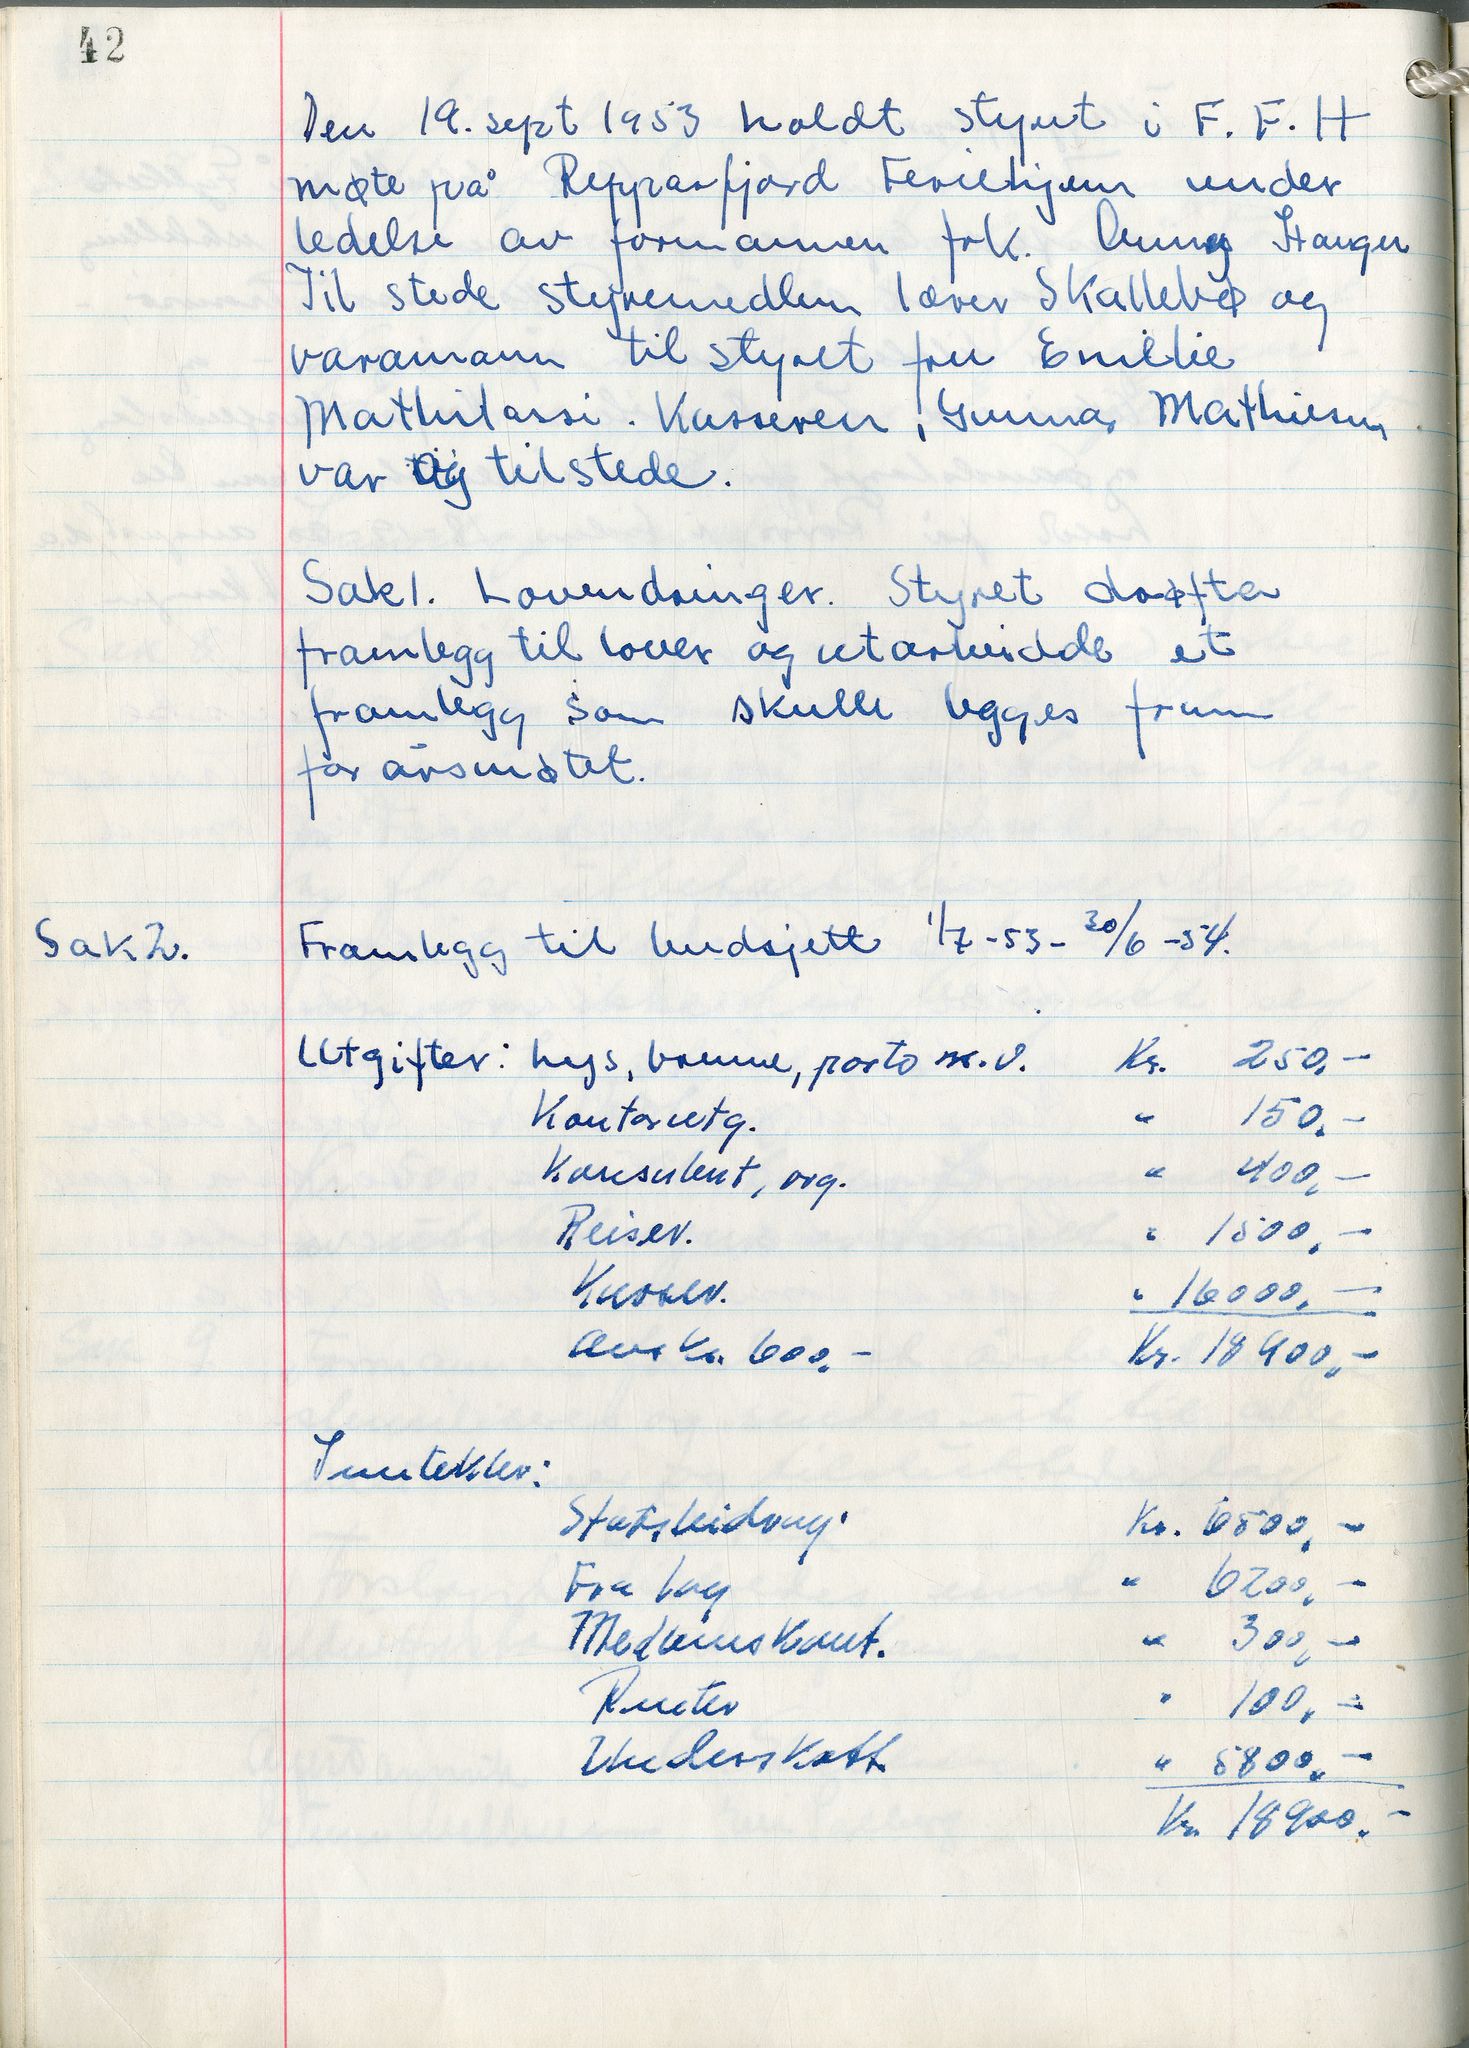 42
Den 19. sept 1953 holdt styret i F. F. H
møte på Repparfjord Feriehjem under
ledelse av formannen frk. Haugen
Til stede styremedlem lærer Skallebø og
varamann til styret fru Emilie
Mathilassi. Kasseren, Gunnar Mathiesen,
var og tilstede.
Sak 1. Lovendringer. Styret drøfta
framlegg til lover og utarbeidde et
framlegg som skulle legges fram
for årsmøtet.
Sak 2. Framlegg til budsjett 1/7 -53 - 30/6 -54.
Utgifter: Lys, brenne, porto m.v. Kr. 250,-
Kontorutg. " 150,-
Konsulent, org. " 400,-
Reiser. " 1500,-
Kurser. " 16000,-
Avskr. 600,- Kr. 18900,-
Inntekter:
Statsbidrag. Kr. 6500,-
Fra lag " 6200,-
Medlemskont. " 300,-
Renter " 100,-
Underskott " 5800,-
Kr. 18900.-